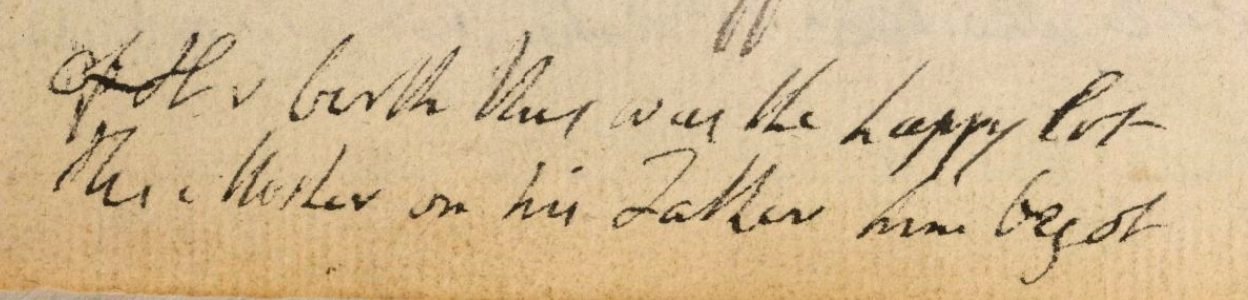 Of H s birth this was the happy lot
His Mother on his Father him begot